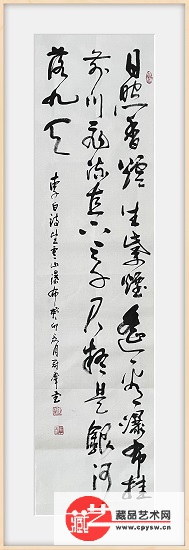 日照香炉生紫烟遥看瀑布挂
前川飞流直下三千尺疑是银河
落九天
李白诗望庐山瀑布癸卯六月
藏艺
藏品艺术网
www.cpysw.cn